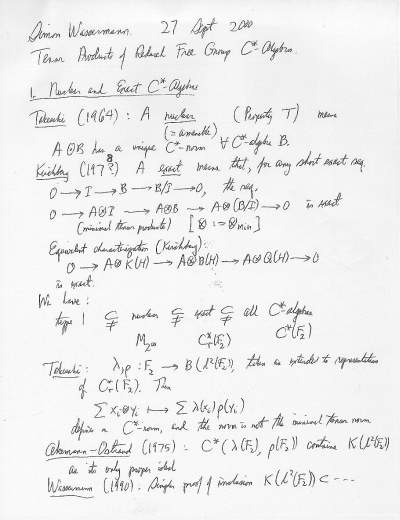 Simon Wassermann. 27 Sept 2000
Tensor Products of Reduced Free Group C*-Algebras.
1. Nuclear and Exact C*-Algebras
Takesaki (1964) : A nuclear (Property T) means
(= amenable)
A ⊙ B has a unique C*-norm ∀ C*-algebra B.
Kirchberg (197?8) A exact means that, for any short exact seq.
0 → I → B → B/I → 0, the seq.
0 → A⊗I → A⊗B → A⊗(B/I) → 0 is exact
(minimal tensor products) [⊗ := ⊗min]
Equivalent characterization (Kirchberg) :
0 → A⊗K(H) → A⊗B(H) → A⊗Q(H) → 0
is exact.
We have :
type 1 ⊊ nuclear ⊊ exact ⊊ all C*-algebras
M2∞ C*r(F2) C*(F2)
Takesaki : λ, ρ : F2 → B(l²(F2)), then as extended to representations
of C*r(F2). Then
∑ xi ⊗ yi ⟼ ∑ λ(xi) ρ(yi)
defines a C*-norm, and the norm is not the minimal tensor norm
Akemann-Ostrand (1975) : C*(λ(F2), ρ(F2)) contains K(l²(F2))
as its only proper ideal
Wassermann (1990). Simpler proof of inclusion K(l²(F2)) ⊂ ---